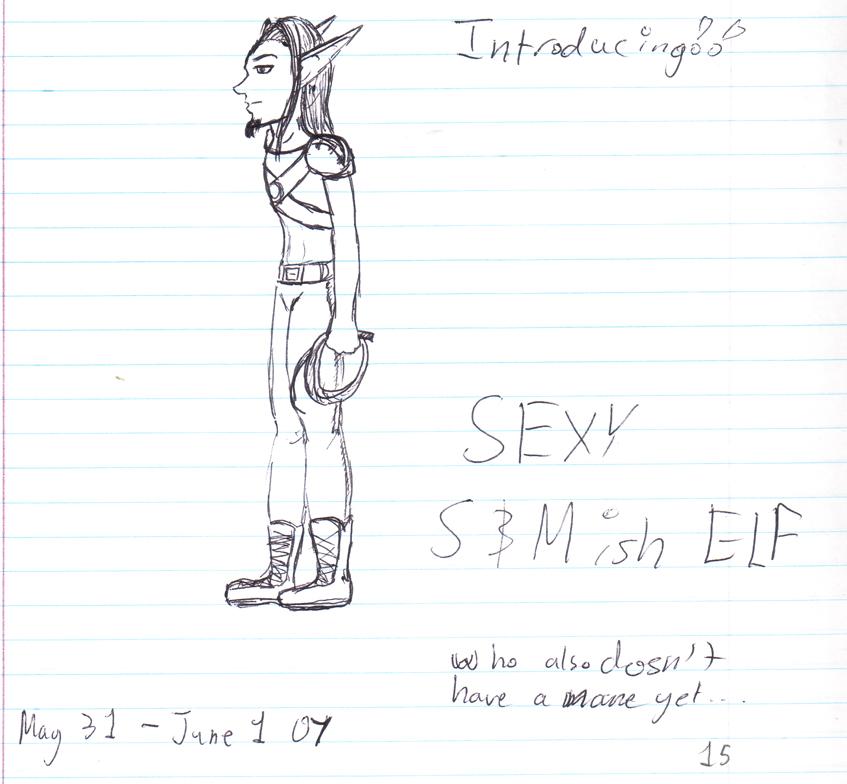 Introducing
SEXY
S&Mish ELF
who also dosn't
have a name yet....
May 31 - June 1 07
15